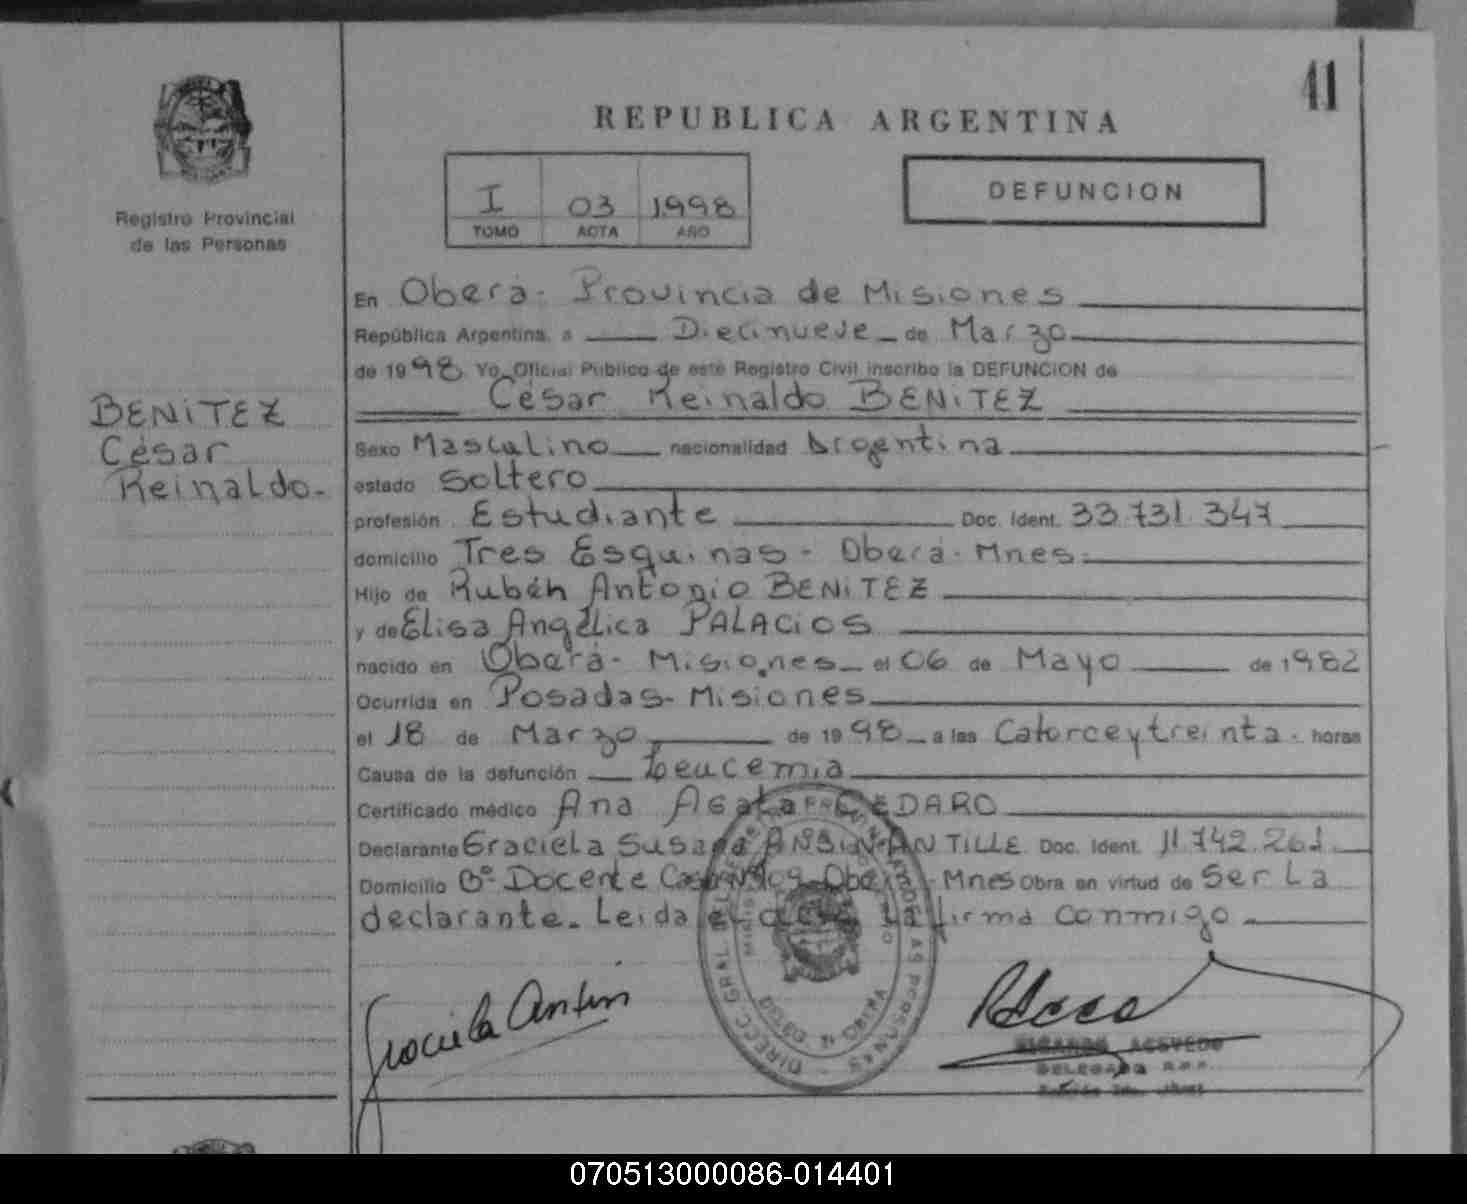 41
REPUBLICA ARGENTINA
I 03 1998
TOMO ACTA AÑO
DEFUNCION
Registro Provincial
de las Personas
BENITEZ
César
Reinaldo.-
En Oberá - Provincia de Misiones
República Argentina, a Diecinueve de Marzo
de 1998 Yo, Oficial Público de este Registro Civil inscribo la DEFUNCION de
César Reinaldo BENITEZ
Sexo Masculino nacionalidad Argentina
estado Soltero
profesión Estudiante Doc. Ident. 33.731.347
domicilio Tres Esquinas - Oberá - Mnes.
Hijo de Rubén Antonio BENITEZ
y de Elisa Angélica PALACIOS
nacido en Oberá - Misiones el 06 de Mayo de 1982
Ocurrida en Posadas - Misiones
el 18 de Marzo de 1998 a las Catorce y treinta - horas
Causa de la defunción Leucemia
Certificado médico Ana Agata CEDARO
Declarante Graciela Susana TILLE Doc. Ident. 11.742.261
Domicilio Bº Docente Oberá - Mnes Obra en virtud de Ser La
declarante. Leida el acta La firma conmigo
Graciela Antun
RICARDO ACEVEDO
DELEGADO R.P.P.
DIRECC. GRAL. DEL DE LAS PERSONAS
070513000086-014401